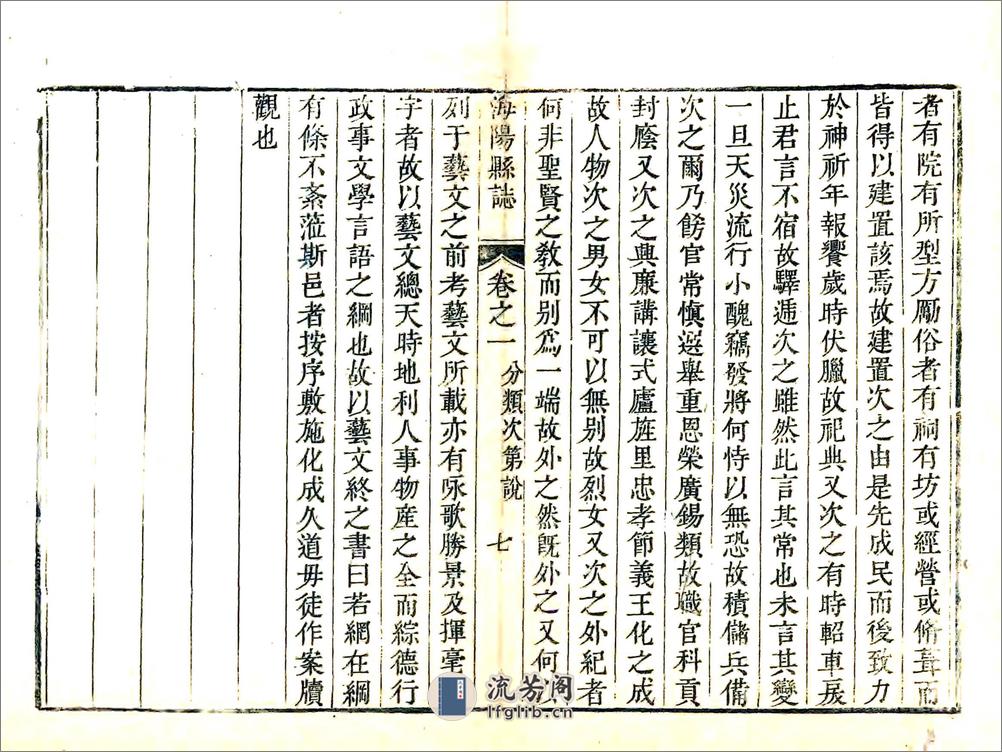 者有院有所型方勵俗者有祠有坊或經營或脩葺而
皆得以建置該焉故建置次之由是先成民而後致力
於神祈年報饗歲時伏臘故祀典又次之有時軺車戾
止君言不宿故驛遞次之雖然此言其常也未言其變
一旦天災流行小醜竊發將何恃以無恐故積儲兵備
次之爾乃餝官常愼選舉重恩榮廣錫類故職官科貢
封廕又次之興廉講讓式廬旌里忠孝節義王化之成
故人物次之男女不可以無别故烈女又次之外紀者
何非聖賢之敎而别爲一端故外之然旣外之又何
海陽縣誌 卷之一 分類次第說 七
列于藝文之前考藝文所載亦有咏歌勝景及揮毫
字者故以藝文總天時地利人事物産之全而綜德行
政事文學言語之綱也故以藝文終之書曰若網在綱
有條不紊蒞斯邑者按序敷施化成久道毋徒作案牘
觀也
流芳阁
lfglib.cn